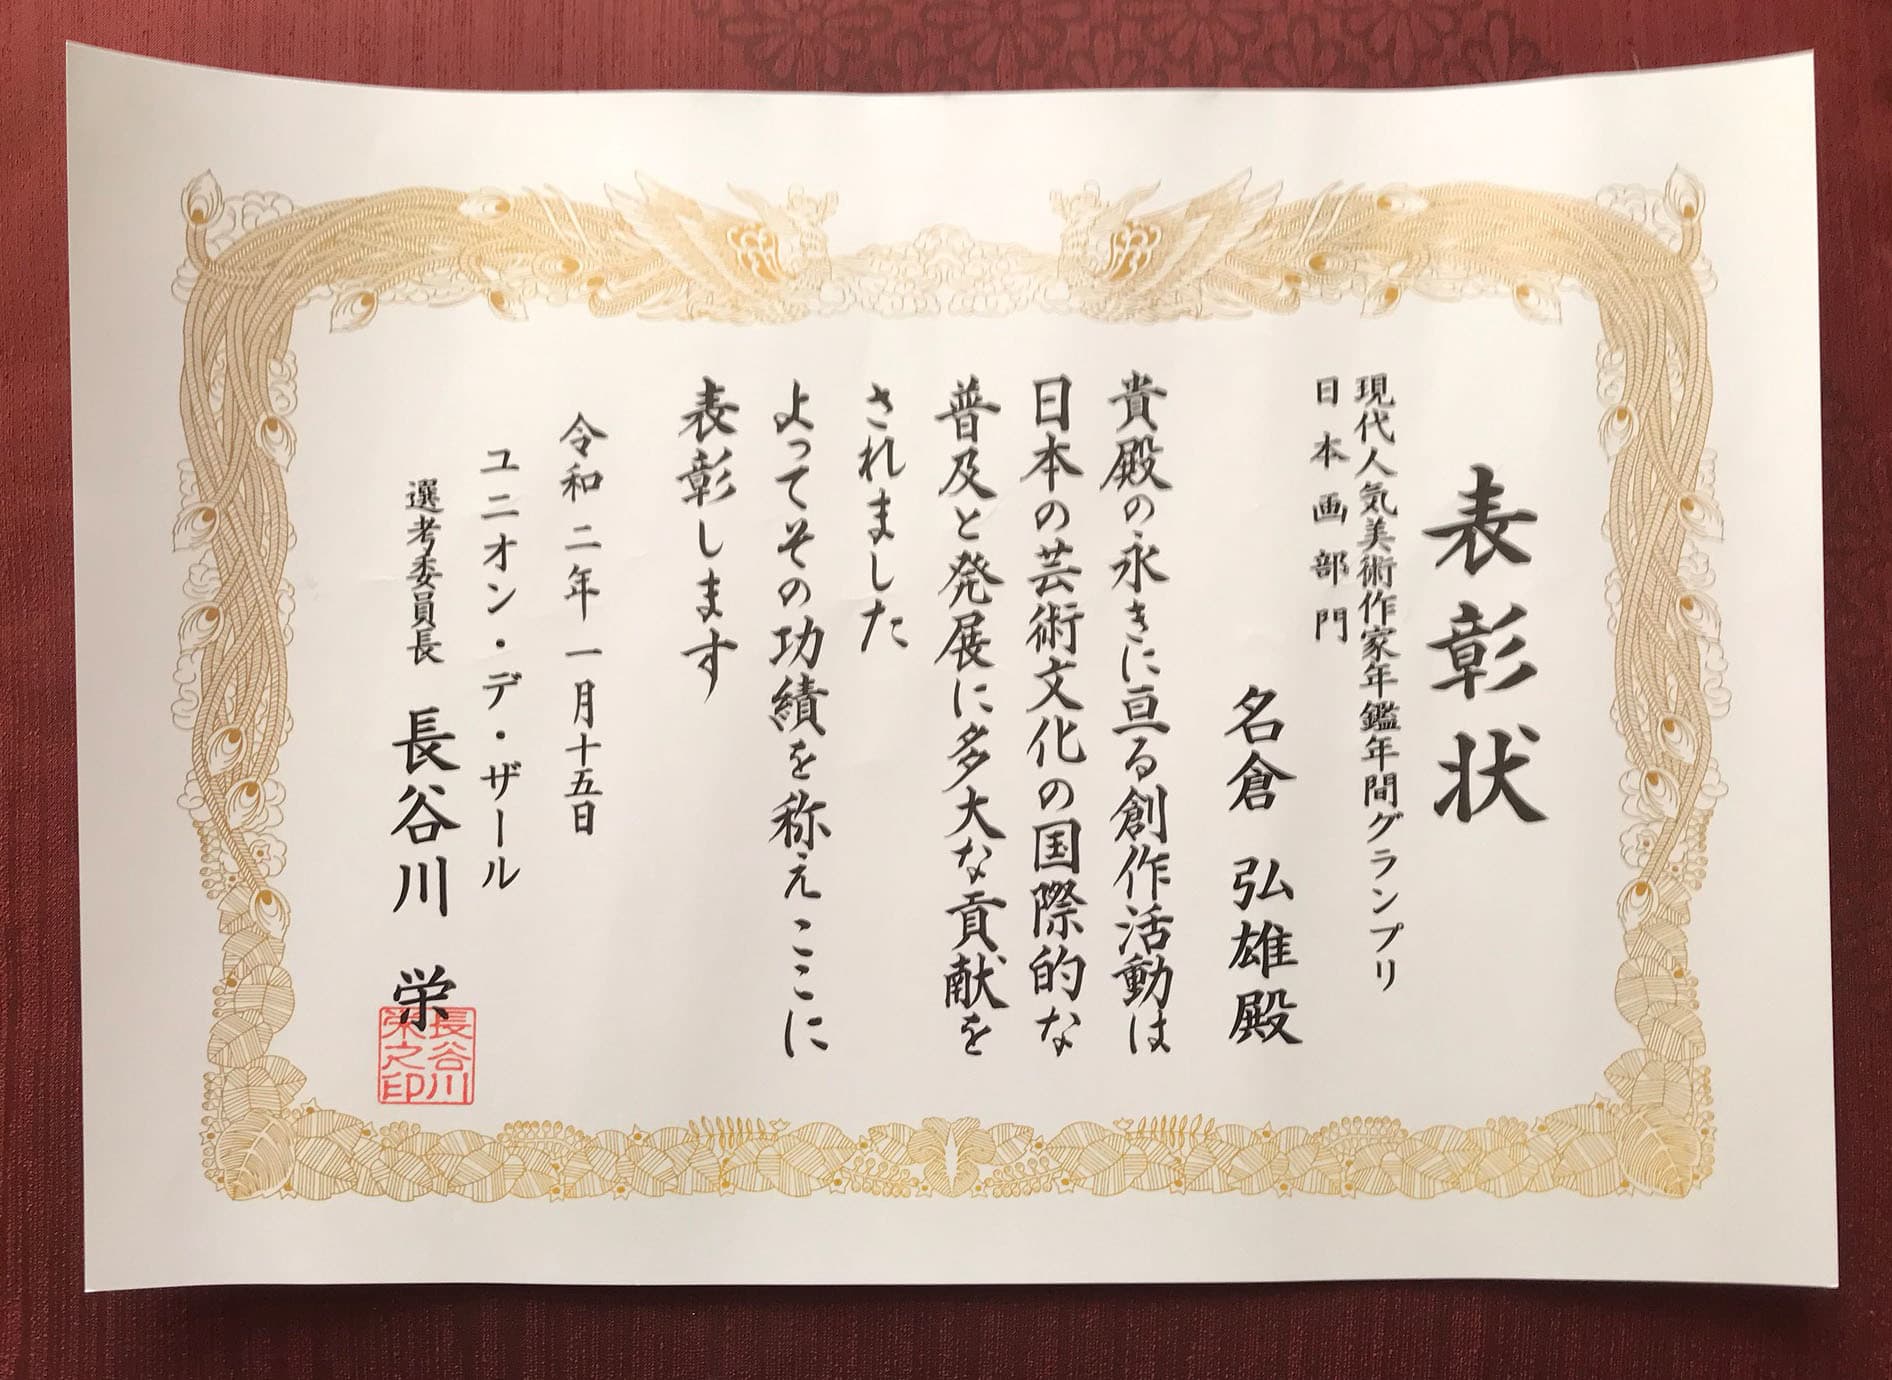 表彰状
現代人気美術作家年鑑年間グランプリ
日本画部門
名倉 弘雄殿
貴殿の永きに亘る創作活動は
日本の芸術文化の国際的な
普及と発展に多大な貢献を
されました
よってその功績を称えここに
表彰します
令和二年一月十五日
ユニオン・デ・ザール
選考委員長 長谷川 栄
長谷川
栄之印